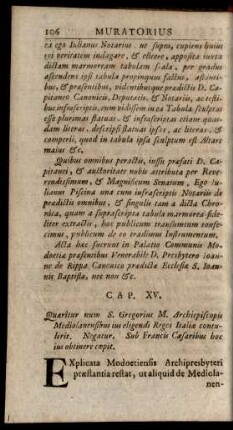 106 MURATORIUS
ea ego Iulianus Notarius ut supra, cupiens huius
rei veritatem indagare, & elicere, apposita iuxta
dictam marmoream tabulam scala, per gradus
ascendens ipsi tabula propinquus factus, astanti-
bus, & prasentibus, videntibusque pradictis D. Ca-
pitaneo Canonicis, Deputatis, & Notariis, ac testi-
bus infrascriptis, cum vidissem in ista Tabula sculptas
esse plurimas statuas, & infrascriptas etiam quas-
dam literas, descripsi statuas ipsas, ac literas, &
comperii, quod in tabula ipsa sculptum est Altare
maius &c.
Quibus omnibus peractis, iussu prafati D. Ca-
pitanei, & auctoritate nobis attributa per Reve-
rendissimum, & Magnificum Senatum, Ego Iu-
lianus Piscina una cum infrascriptis Notariis de
pradictis omnibus, & singulis tam a dicta Chro-
nica, quam a suprascripta tabula marmorea fide-
liter extractis, hoc publicum transumtum confe-
cimus, publicum de eo tradimus Instrumentum.
Acta hac fuerunt in Palatio Communis Mo-
doetia prasentibus Venerabile D. Presbytero Ioan-
ne de Rippa Canonico pradicta Ecclesia S. Ioan-
nis Baptista, nec non &c.
CAP. XV.
Quaritur num S. Gregorius M. Archiepiscopis
Mediolanensibus ius eligendi Reges Italia contu-
lerit. Negatur. Sub Francis Casaribus hoc
ius obtinere coepit.
EXplicata Modoetiensis Archipresbyteri
præstantia restat, ut aliquid de Mediola-
nen-